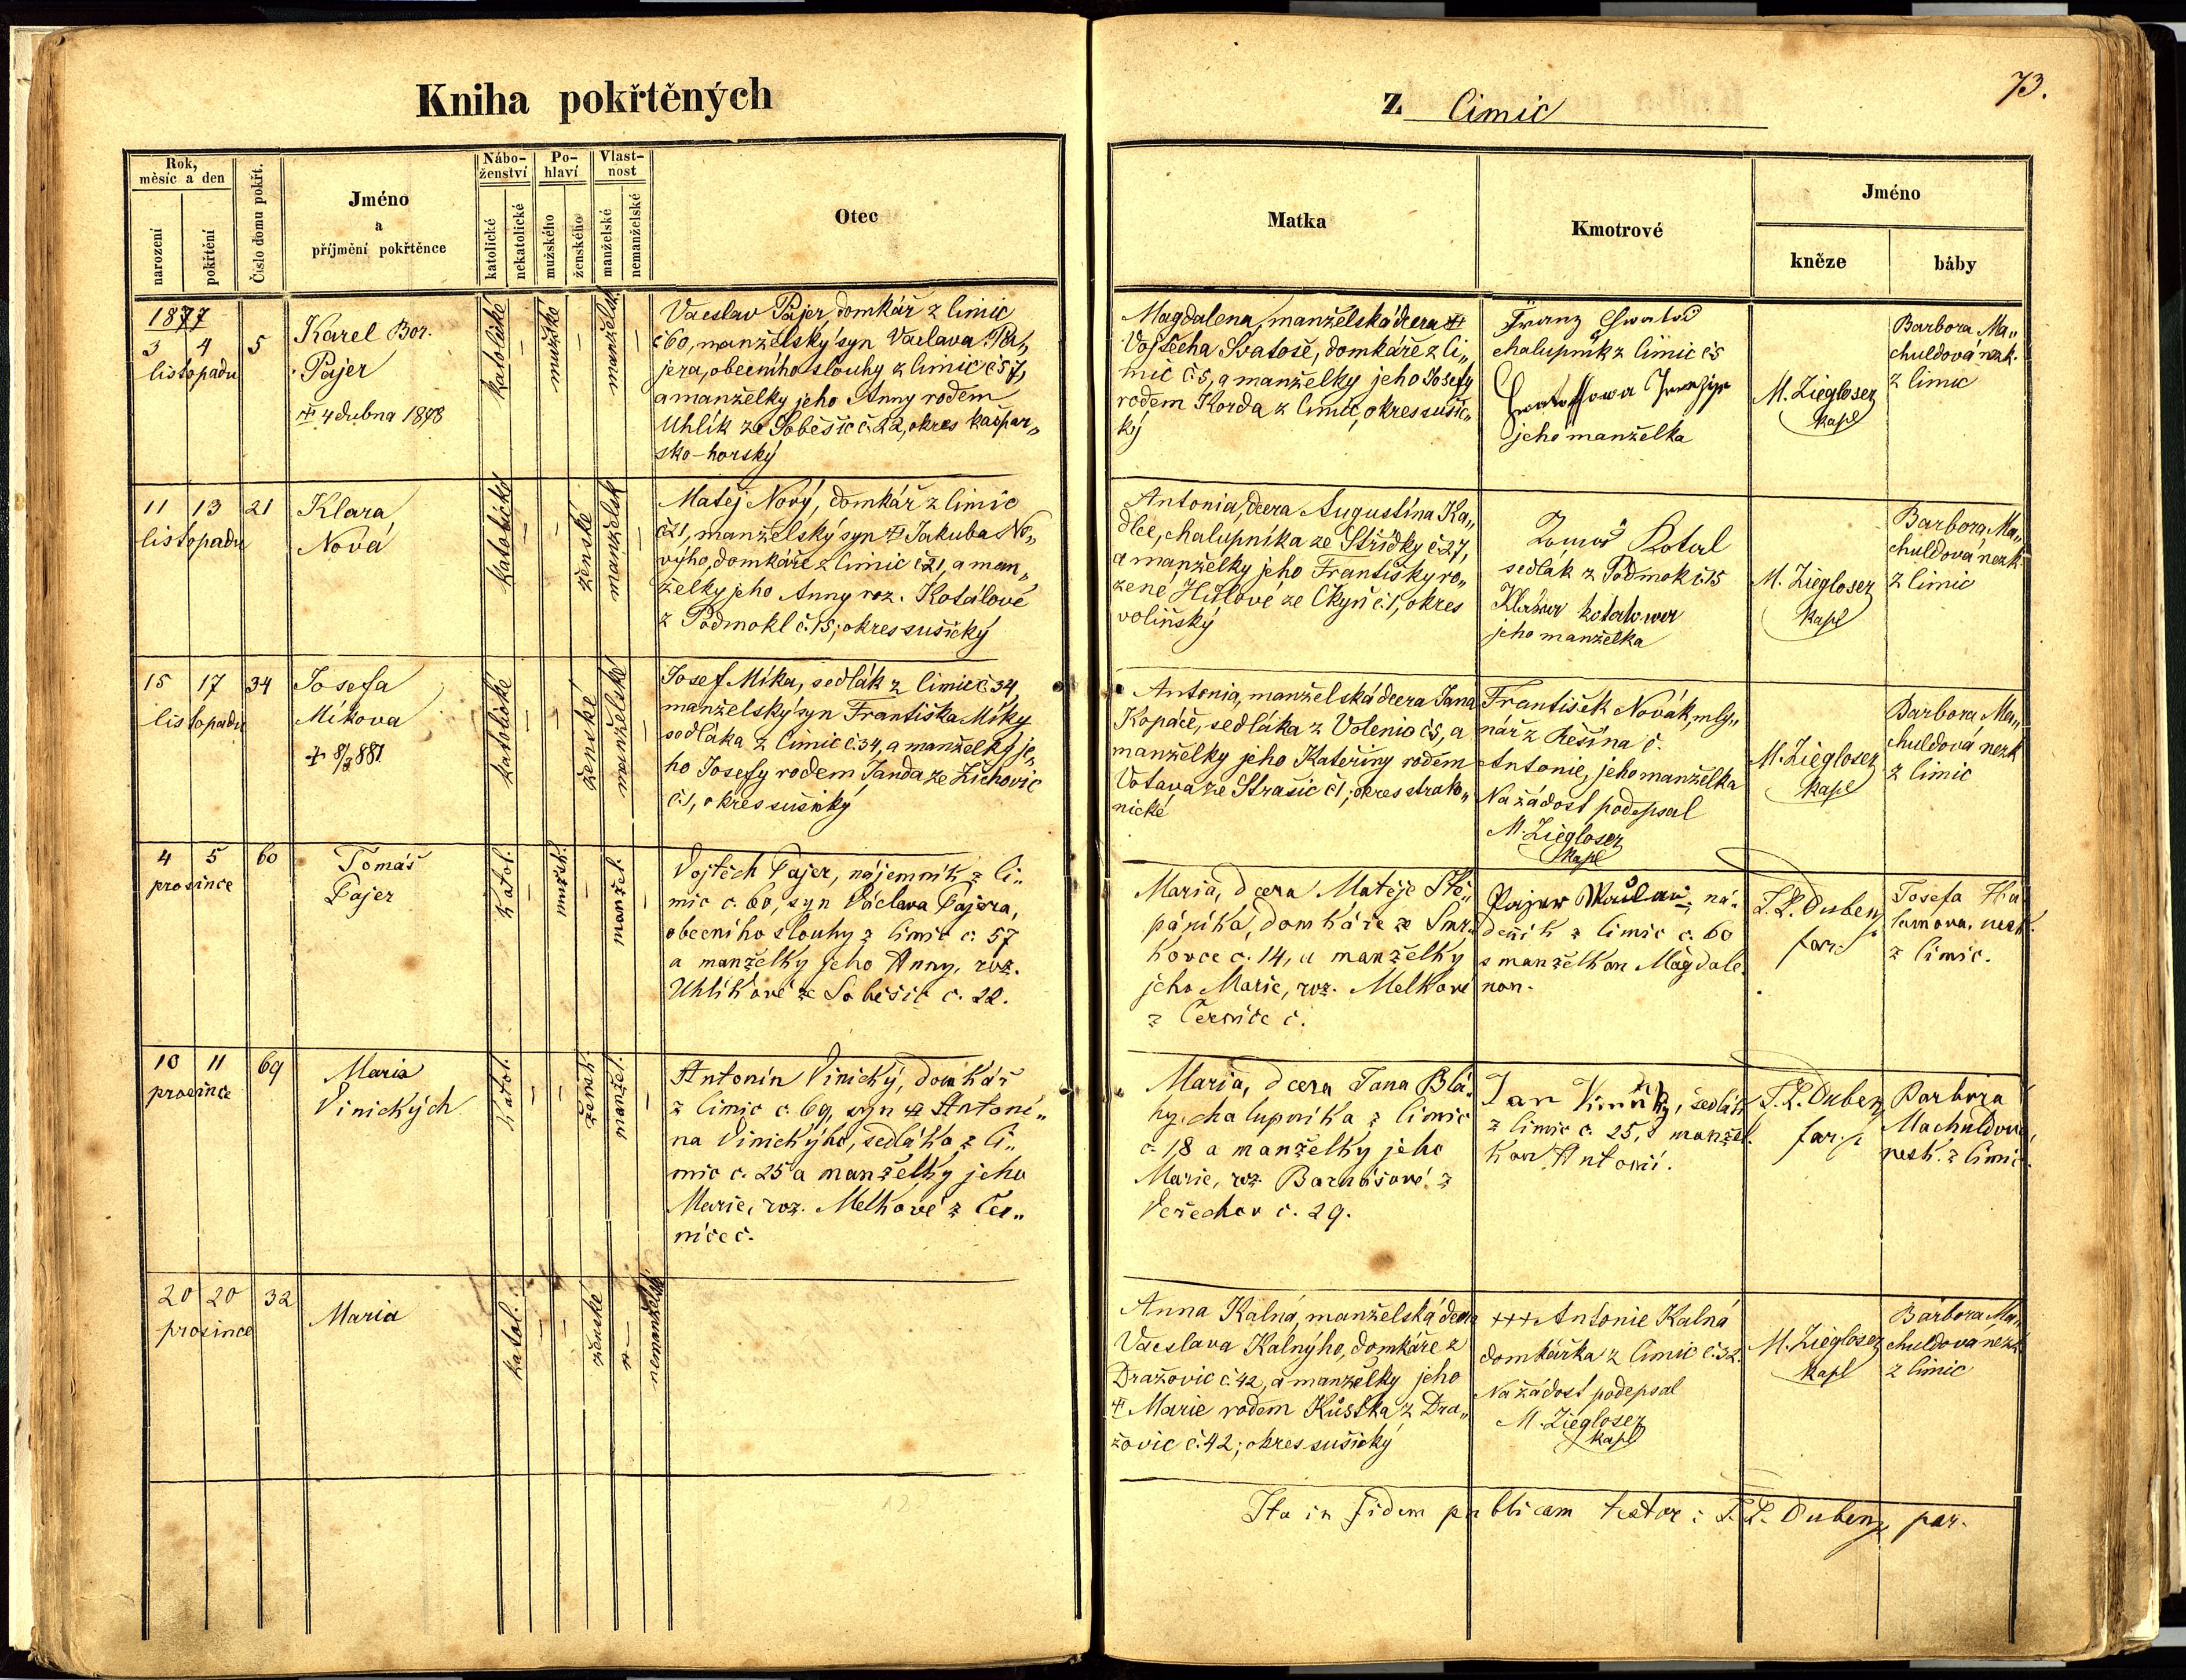 Kniha pokřtěných
z Cimic
73.
Rok,
měsíc a den
narození
pokřtění
Číslo domu pokřt.
Jméno
a
příjmění pokřtěnce
Nábo-
ženství
katolické
nekatolické
Po-
hlaví
mužského
ženského
Vlast-
nost
manželské
nemanželské
Otec
Matka
Kmotrové
Jméno
kněze
báby
1877
3 4 5
listopadu
Karel Bor.
Pajer
4 dubna 1878
katolické
—
mužské
—
manželsk
—
Vaclav Pajer, domkář z Cimic
č 60, manželský syn Václava Pa„
jera, obecního slouhy z Cimic č 57,
a manželky jeho Anny rodem
Uhlík ze Soběšic č. 22, okres kašpar„
sko-horský
Magdalena, manželská dcera
Vojtěcha Svatoše, domkáře z Ci„
mic č. 5, a manželky jeho Josefy
rodem Korda z Cimic, okres sušic„
ký
Franz
chalupník z Cimic č 5
jeho manželka
M. Ziegloser
kapl
Barbora Ma„
chuldová nezk.
z Cimic
11 13 21
listopadu
Klara
Nová
katolické
—
—
ženské
manželsk
—
Matěj Nový, domkář z Cimic
č 21, manželský syn Jakuba No„
výho, domkáře z Cimic č 21, a man„
želky jeho Anny roz. Kotálové
z Podmokl č. 15; okres sušický
Antonia, dcera Augustina Ka„
dlce, chalupníka ze Střídky č. 27,
a manželky jeho Františky ro„
zené Hůlové ze Čkyň č. 1, okres
volíňský
Tomáš Kotal
sedlák z Podmok č. 15
Klara kotalowa
jeho manželka
M. Ziegloser
kapl
Barbora Ma„
chuldová nezk.
z Cimic
15 17 34
listopadu
Josefa
Míkova
+ 8/3 881
katolické
—
—
ženské
manželské
—
Josef Míka, sedlák z Cimic č 34,
manželský syn Františka Míky
sedláka z Cimic č. 34, a manželky je„
ho Josefy rodem Janda ze Žichovic
č. 1, okres sušický
Antonia, manželská dcera Jana
Kopáče, sedláka z Volenio č 5, a
manželky jeho Kateřiny rodem
Votava ze Strašic č 1; okres strako„
nické
František Novák, mly„
nář z Řešína č.
Antonie, jeho manželka
Na žádost podepsal
M. Ziegloser
kapl
M. Ziegloser
kapl
Barbora Ma„
chuldová nezk
z Cimic
4 5 60
prosince
Tomáš
Pajer
katol.
—
mužsk.
—
manžel.
—
Vojtěch Pajer, nájemník z Ci„
mic č. 60, syn Václava Pajera,
obecního slouhy z Cimic č. 57
a manželky jeho Anny, roz.
Uhlíkové ze Soběšic č. 22.
Maria, dcera Matěje Ště„
pánika, domkáře ze Smr„
kovce č. 14, a manželky
jeho Marie, roz. Melkové
z Černíče č.
Pajer Waclaw, ná„
deník z Cimic č. 60
s manželkou Magdale„
nou.
F. L. Duben
far.
Josefa
nezk.
z Cimic.
10 11 69
prosince
Maria
Vinických
katol.
—
—
žensk.
manžel.
—
Antonín Vinický, domkář
z Cimic č. 69, syn Antoní„
na Vinickýho, sedláka z Ci„
mic č. 25 a manželky jeho
Marie, roz. Melkové z Čer„
níče č.
Maria, dcera Jana Blá„
hy, chalupníka z Cimic
č. 18 a manželky jeho
Marie, roz. Barnášové z
Veřechov č. 29.
Jan Vinický, sedlák
z Cimic č. 25, s manžel„
kou Antonií.
F. L. Duben
far.
Barbora
Machuldova,
nezk. z Cimic.
20 20 32
prosince
Maria
katol.
—
—
ženské
—
nemanželské
Anna Kalná, manželská dcera
Václava Kalnýho, domkáře z
Dražovic č. 42, a manželky jeho
Marie rodem Kůstka z Dra„
žovic č. 42; okres sušický
+++ Antonie Kalná
domkářka z Cimic č. 32.
Na žádost podepsal
M. Ziegloser
kapl
M. Ziegloser
kapl
Barbora Ma„
chuldova nezk.
z Cimic
Ita in fidem publicam testor: F. L. Duben, par.